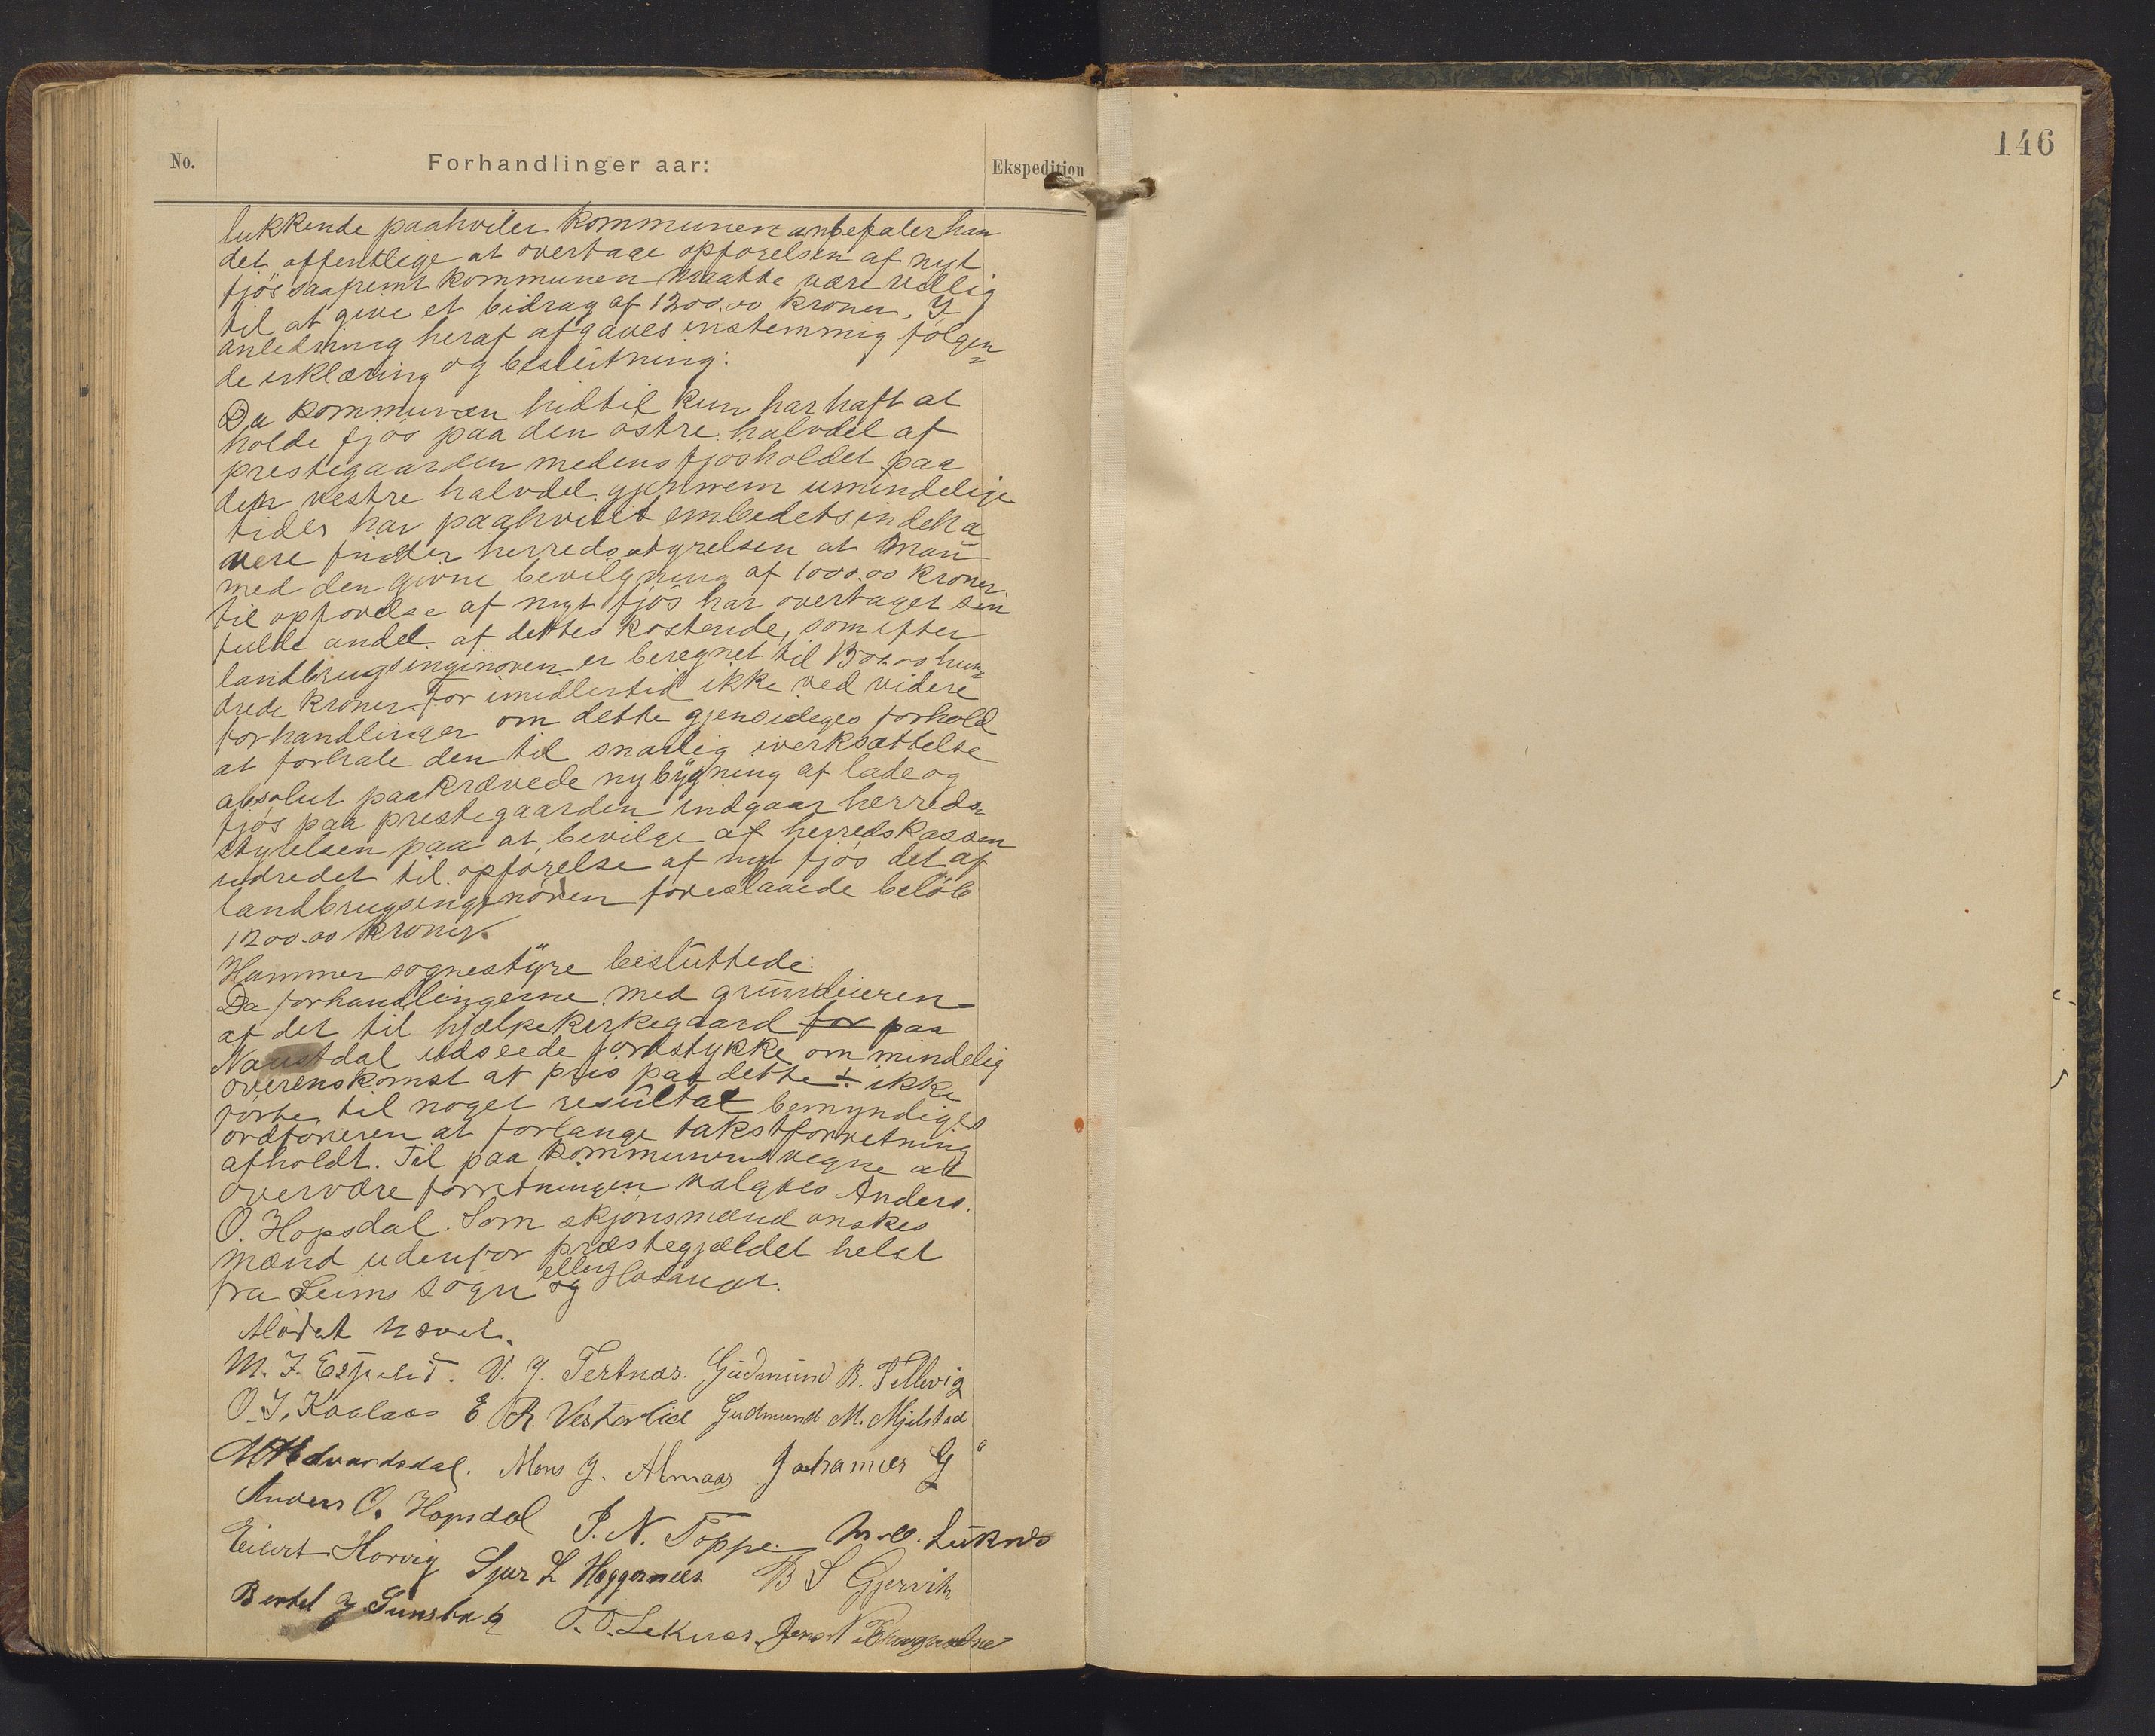 146
No.
Forhandlinger aar:
Ekspedition
lukkende paahviler kommunen anbefaler han
det offentlige at overtage opførelsen af nyt
fjøs saafremt kommunen maatte være villig
til at give et bidrag af 1200.00 kroner. I
anledning heraf afgaves enstemmig følgen=
de erklæring og beslutning:
Da kommunen hidtil kun har haft at
holde fjøs paa den østre halvdel af
prestegaarden medens fjøsholdet paa
den vestre halvdel gjennem umindelige
tider har paahvilet embedets indeha
vere finder herredsstyrelsen at man
med den givne bevilgning af 1000.00 kroner
til opførelse af nyt fjøs har overtaget sin
fulde andel af dettes kostende, som efter
landbrugsingeniøren er beregnet til hun=
drede kroner. For imidlertid ikke ved videre
forhandlinger om dette gjensidiges forhold
at forhale den til snarlig iverksættelse
absolut paakrævede nybygning af lade og
fjøs paa prestegaarden indgaar herreds=
styrelsen paa at bevilge af herredskassen
udredet til opførelse af nyt fjøs det af
landbrugsingeniøren foreslaaede beløb
1200.00 kroner.
Hammer sognestyre besluttede:
Da forhandlingerne med grundeieren
af det til hjælpekirkegaard for paa
Naustdal udseede jordstykke om mindelig
overenskomst at pris paa dette ikke
førte til noget resultat bemyndiges
ordføreren at forlange takstforretning
afholdt. Til paa kommunens vegne at
overvære forretningen valgtes Anders
O. Hopsdal. Som skjønsmænd ønskes
mænd udenfor præstegjældet helst
fra Seims sogn og eller Hosanger.
Mødet hævet.
M. J. Espelid. V. J. Tertnæs. Gudmund B. Tellevig
O. J. Kaalaas E. A. Vesterlid Gudmund M. Mjelstad
Edvardsdal. Mons J. Almaas Johannes G
Anders O. Hopsdal J. N. Toppe M. O. Lüknes
Eilert Horvig Sjur L Heggernes B S Gjervik
Bertel J. O. O. Leknes. Jens N